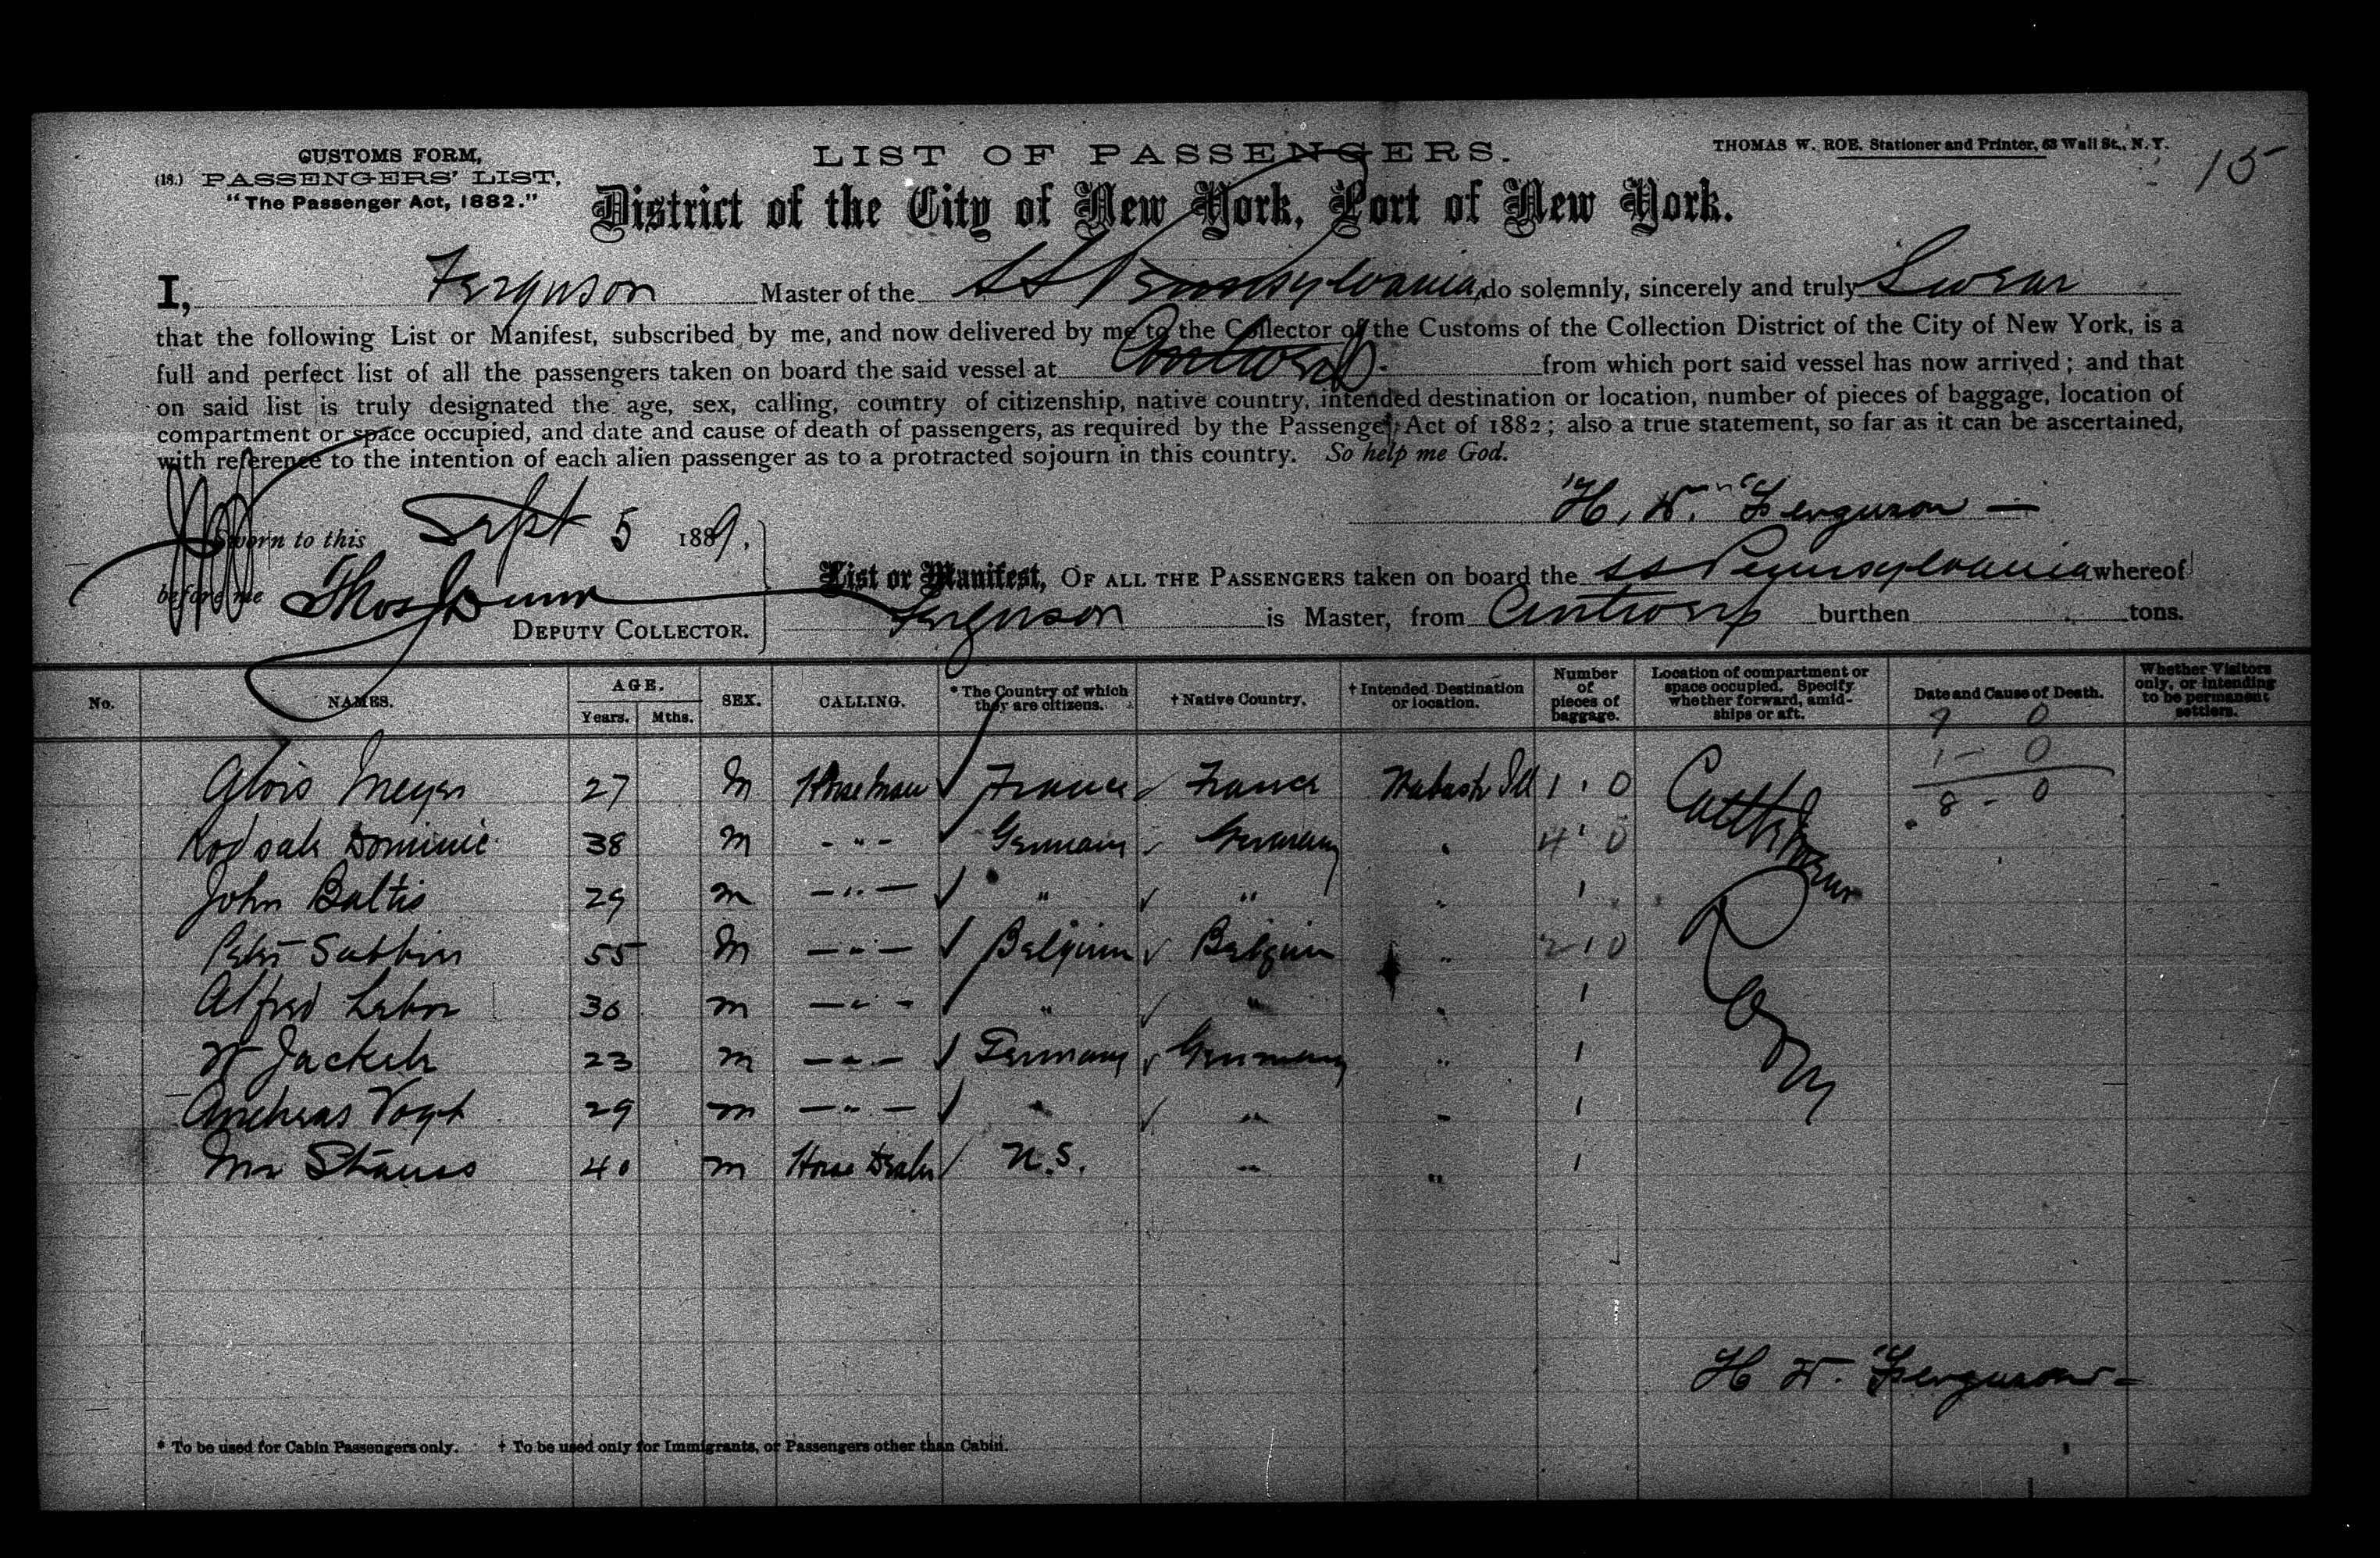 CUSTOMS FORM,
(18.) PASSENGERS' LIST,
"The Passenger Act, 1882."
LIST OF PASSENGERS.
THOMAS W. ROE, Stationer and Printer, 63 Wall St., N. Y.
15
District of the City of New York, Port of New York.
I, Ferguson Master of the SS Pennsylvania, do solemnly, sincerely and truly Swear
that the following List or Manifest, subscribed by me, and now delivered by me to the Collector of the Customs of the Collection District of the City of New York, is a
full and perfect list of all the passengers taken on board the said vessel at Antwerp. from which port said vessel has now arrived; and that
on said list is truly designated the age, sex, calling, country of citizenship, native country, intended destination or location, number of pieces of baggage, location of
compartment or space occupied, and date and cause of death of passengers, as required by the Passenger Act of 1882; also a true statement, so far as it can be ascertained,
with reference to the intention of each alien passenger as to a protracted sojourn in this country. So help me God.
H. W. Ferguson —
Sworn to this Sept 5 1889,
before me Thos Dunn
DEPUTY COLLECTOR.
List or Manifest, OF ALL THE PASSENGERS taken on board the SS Pennsylvania whereof
Ferguson is Master, from Antwerp burthen tons.
No. NAMES. AGE. Years. Mths. SEX. CALLING. * The Country of which they are citizens. † Native Country. † Intended Destination or location. Number of pieces of baggage. Location of compartment or space occupied. Specify whether forward, amidships or aft. Date and Cause of Death. Whether Visitors only, or intending to be permanent settlers.
7 0
1 - 0
8 - 0
Meyer 27 M Horseman France France Wabash Ill 1 . 0 Cattlemen
Dominic 38 M - " - Germany Germany " 4 ' 0
John Baltis 29 M - " - " " " 1
Peter 55 M - " - Belgium Belgium " 2 1 0
Alfred 30 M - " - " " " 1
W Jackels 23 M - " - Germany Germany " 1
Andreas Vogt 29 M - " - " " " 1
Mr Strauss 40 M Horse Dealer U.S. " " 1
H W. Ferguson -
* To be used for Cabin Passengers only. † To be used only for Immigrants, or Passengers other than Cabin.